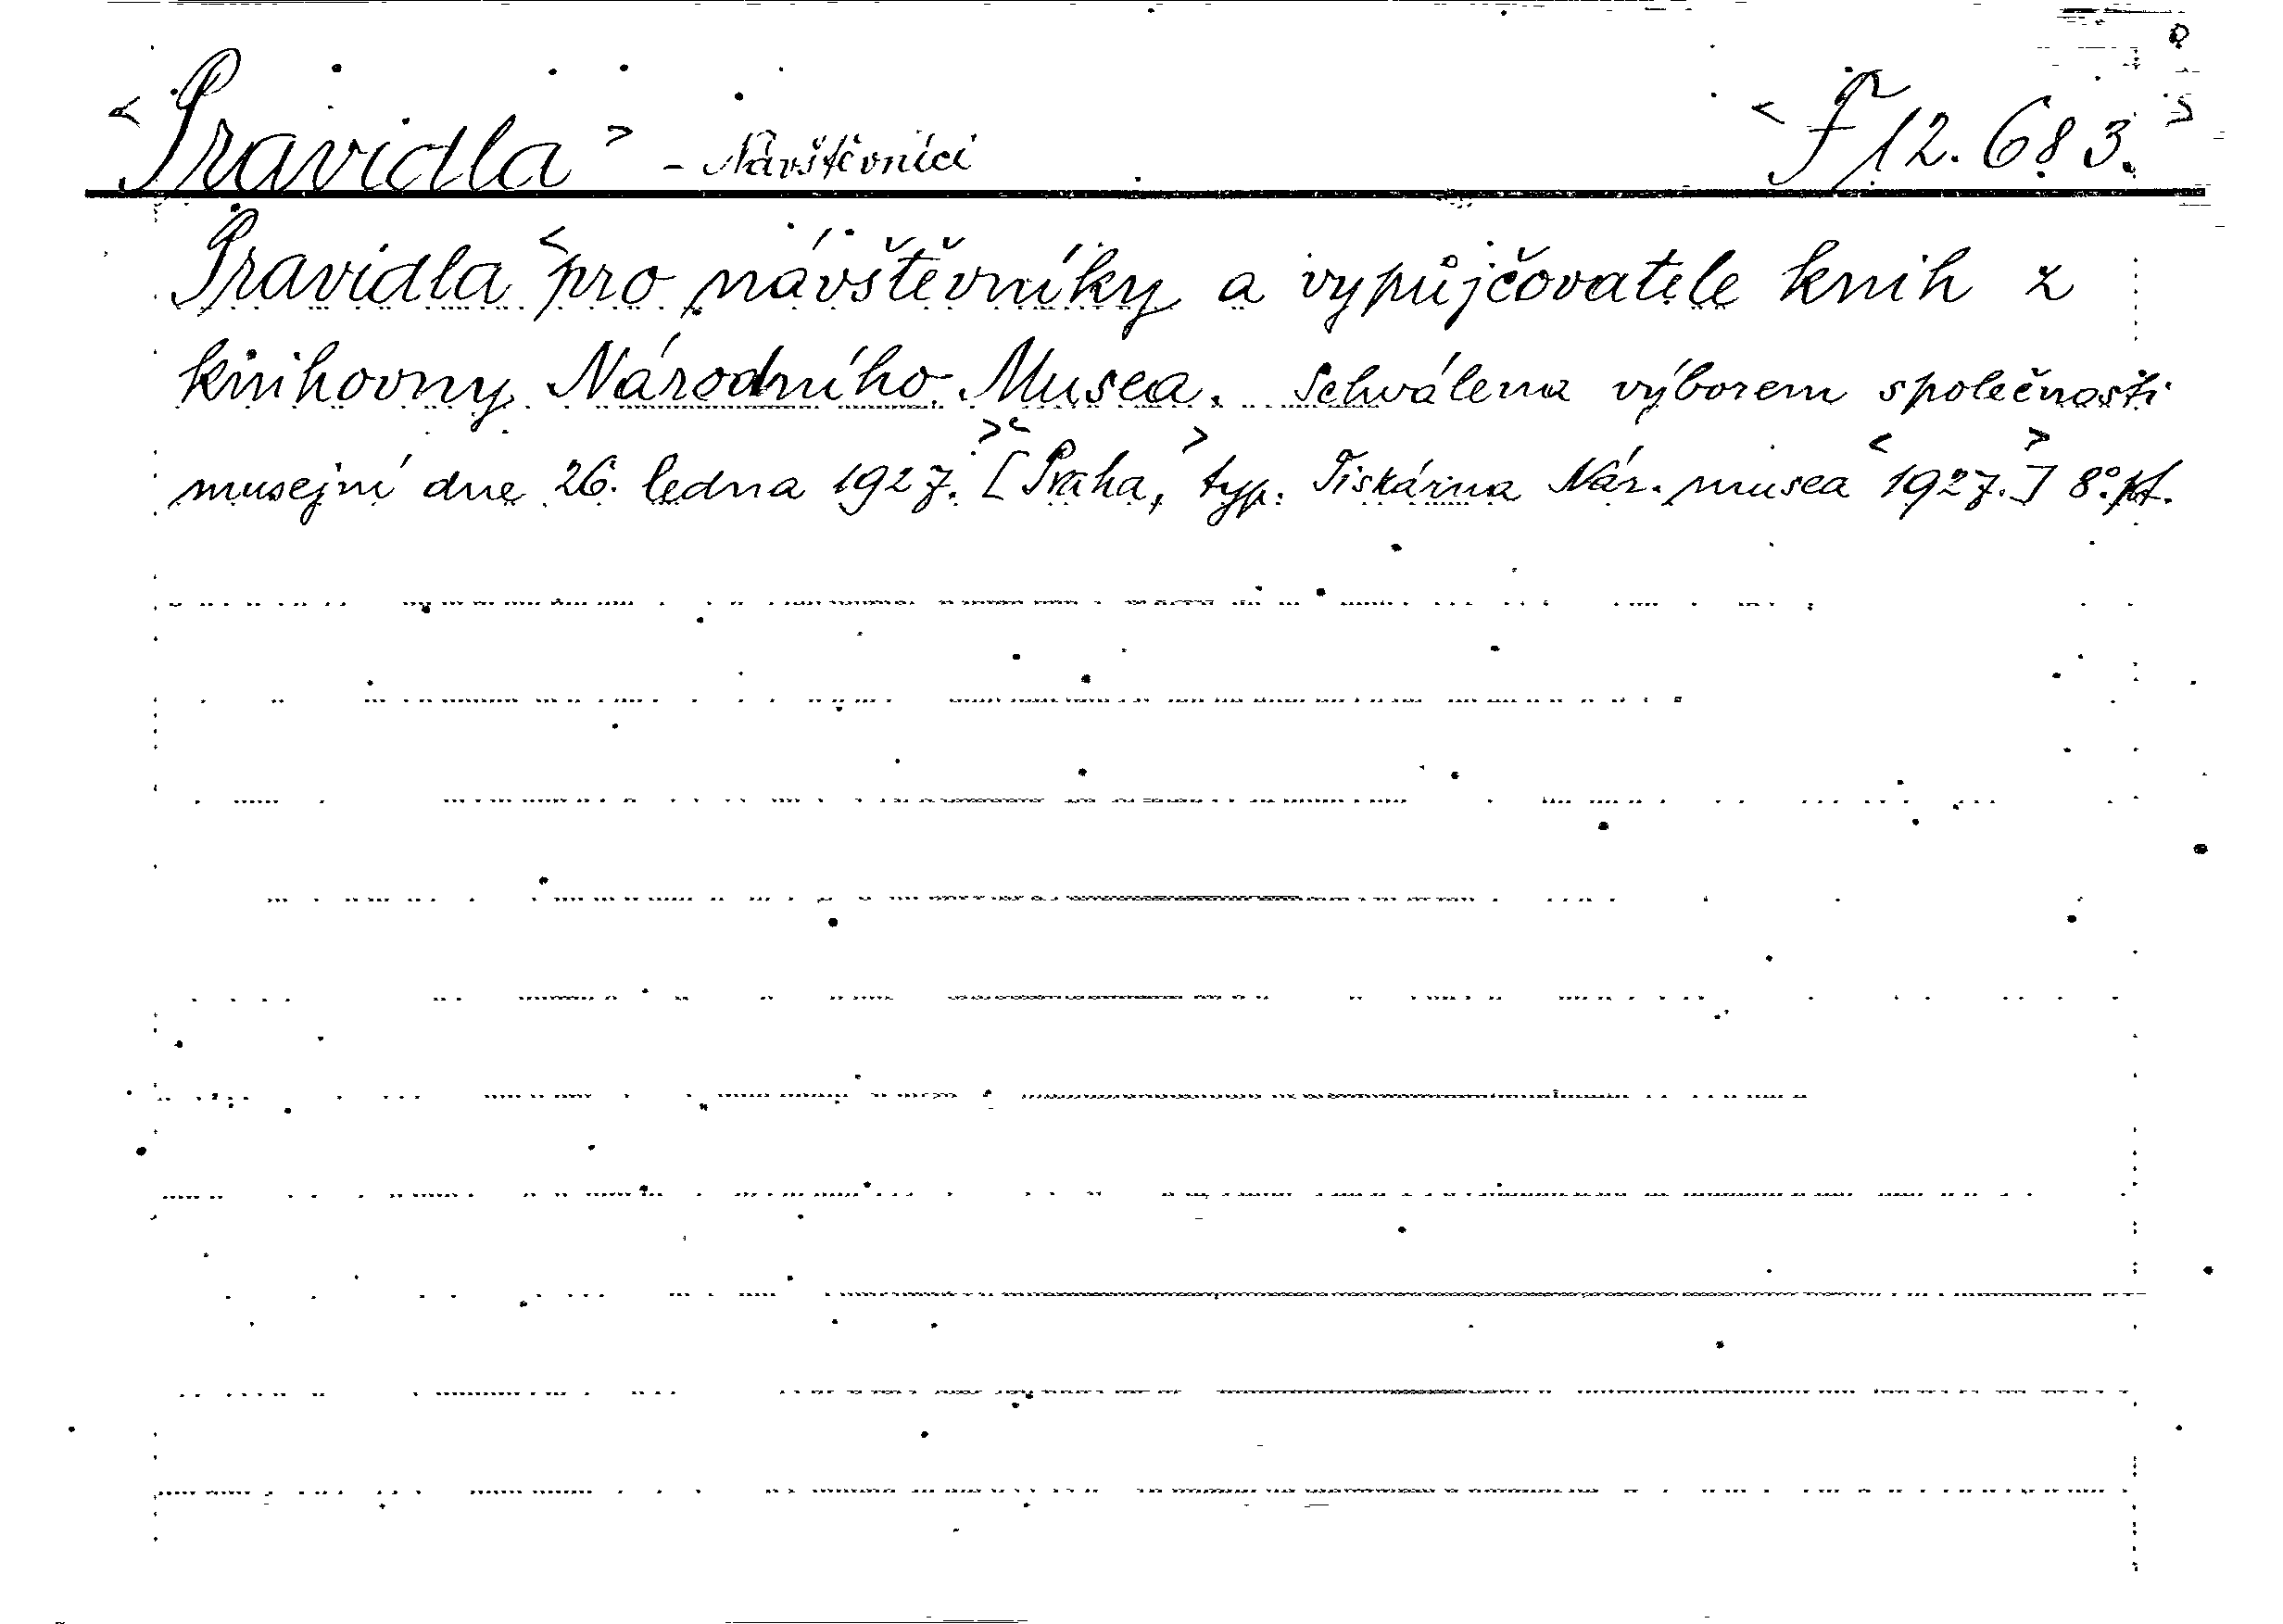 <Pravidla> - Návštěvníci <F 12.683.>
Pravidla <pro návštěvníky a vypůjčovatele knih z
knihovny Národního Musea. Schválena výborem společnosti
musejní dne 26. ledna 1927.> <[Praha,> typ. Tiskárna Nár. musea <1927.>] 8°.